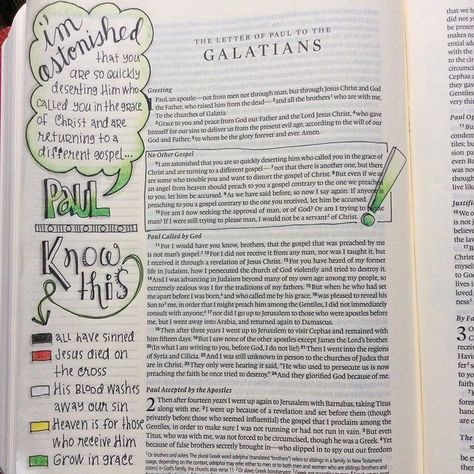 i'm
astonished
that you
are so quickly
deserting Him who
called you in the grace
of Christ and are
returning to a
different gospel...
Paul
Know
this
all have sinned
Jesus died on
the cross
His BLOOD washes
away our sin
Heaven is for those
who receive Him
Grow in grace
THE LETTER OF PAUL TO THE
GALATIANS
Greeting
1 Paul, an apostle—not from men nor through man, but through Jesus Christ and God
the Father, who raised him from the dead— 2 and all the brothers who are with me,
To the churches of Galatia:
3 Grace to you and peace from God our Father and the Lord Jesus Christ, 4 who gave
himself for our sins to deliver us from the present evil age, according to the will of our
God and Father, 5 to whom be the glory forever and ever. Amen.
No Other Gospel
6 I am astonished that you are so quickly deserting him who called you in the grace of
Christ and are turning to a different gospel— 7 not that there is another one, but there
are some who trouble you and want to distort the gospel of Christ. 8 But even if we or
an angel from heaven should preach to you a gospel contrary to the one we preached
to you, let him be accursed. 9 As we have said before, so now I say again: If anyone is
preaching to you a gospel contrary to the one you received, let him be accursed.
10 For am I now seeking the approval of man, or of God? Or am I trying to please
man? If I were still trying to please man, I would not be a servant of Christ.
Paul Called by God
11 For I would have you know, brothers, that the gospel that was preached by me
is not man's gospel. 12 For I did not receive it from any man, nor was I taught it, but
I received it through a revelation of Jesus Christ. 13 For you have heard of my former
life in Judaism, how I persecuted the church of God violently and tried to destroy it.
14 And I was advancing in Judaism beyond many of my own age among my people, so
extremely zealous was I for the traditions of my fathers. 15 But when he who had set
me apart before I was born, and who called me by his grace, 16 was pleased to reveal his
Son to me, in order that I might preach him among the Gentiles, I did not immediately
consult with anyone; 17 nor did I go up to Jerusalem to those who were apostles before
me, but I went away into Arabia, and returned again to Damascus.
18 Then after three years I went up to Jerusalem to visit Cephas and remained with
him fifteen days. 19 But I saw none of the other apostles except James the Lord's brother.
20 (In what I am writing to you, before God, I do not lie!) 21 Then I went into the regions
of Syria and Cilicia. 22 And I was still unknown in person to the churches of Judea that
are in Christ. 23 They only were hearing it said, "He who used to persecute us is now
preaching the faith he once tried to destroy." 24 And they glorified God because of me.
Paul Accepted by the Apostles
2 Then after fourteen years I went up again to Jerusalem with Barnabas, taking Titus
along with me. 2 I went up because of a revelation and set before them (though
privately before those who seemed influential) the gospel that I proclaim among the
Gentiles, in order to make sure I was not running or had not run in vain. 3 But even
Titus, who was with me, was not forced to be circumcised, though he was a Greek. 4 Yet
because of false brothers secretly brought in—who slipped in to spy out our freedom